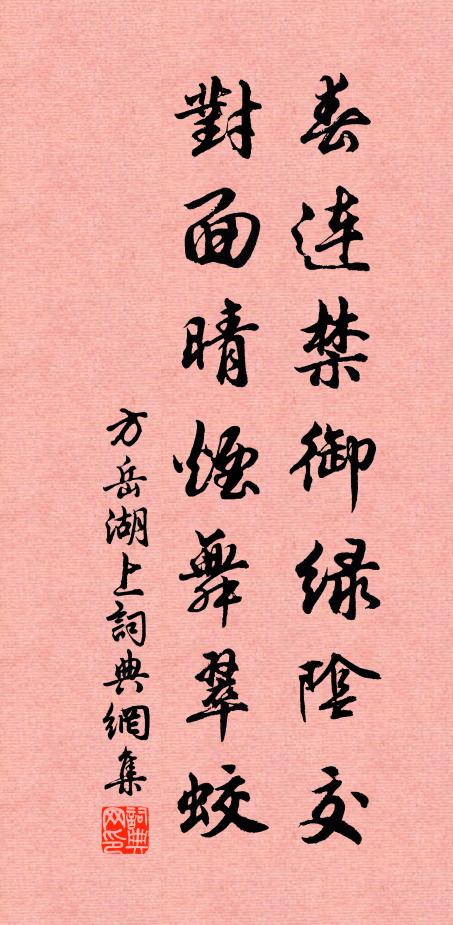 春連禁御緑陰交
對面晴煙舞翠蛟
方岳湖上詞典網集
詞典网印